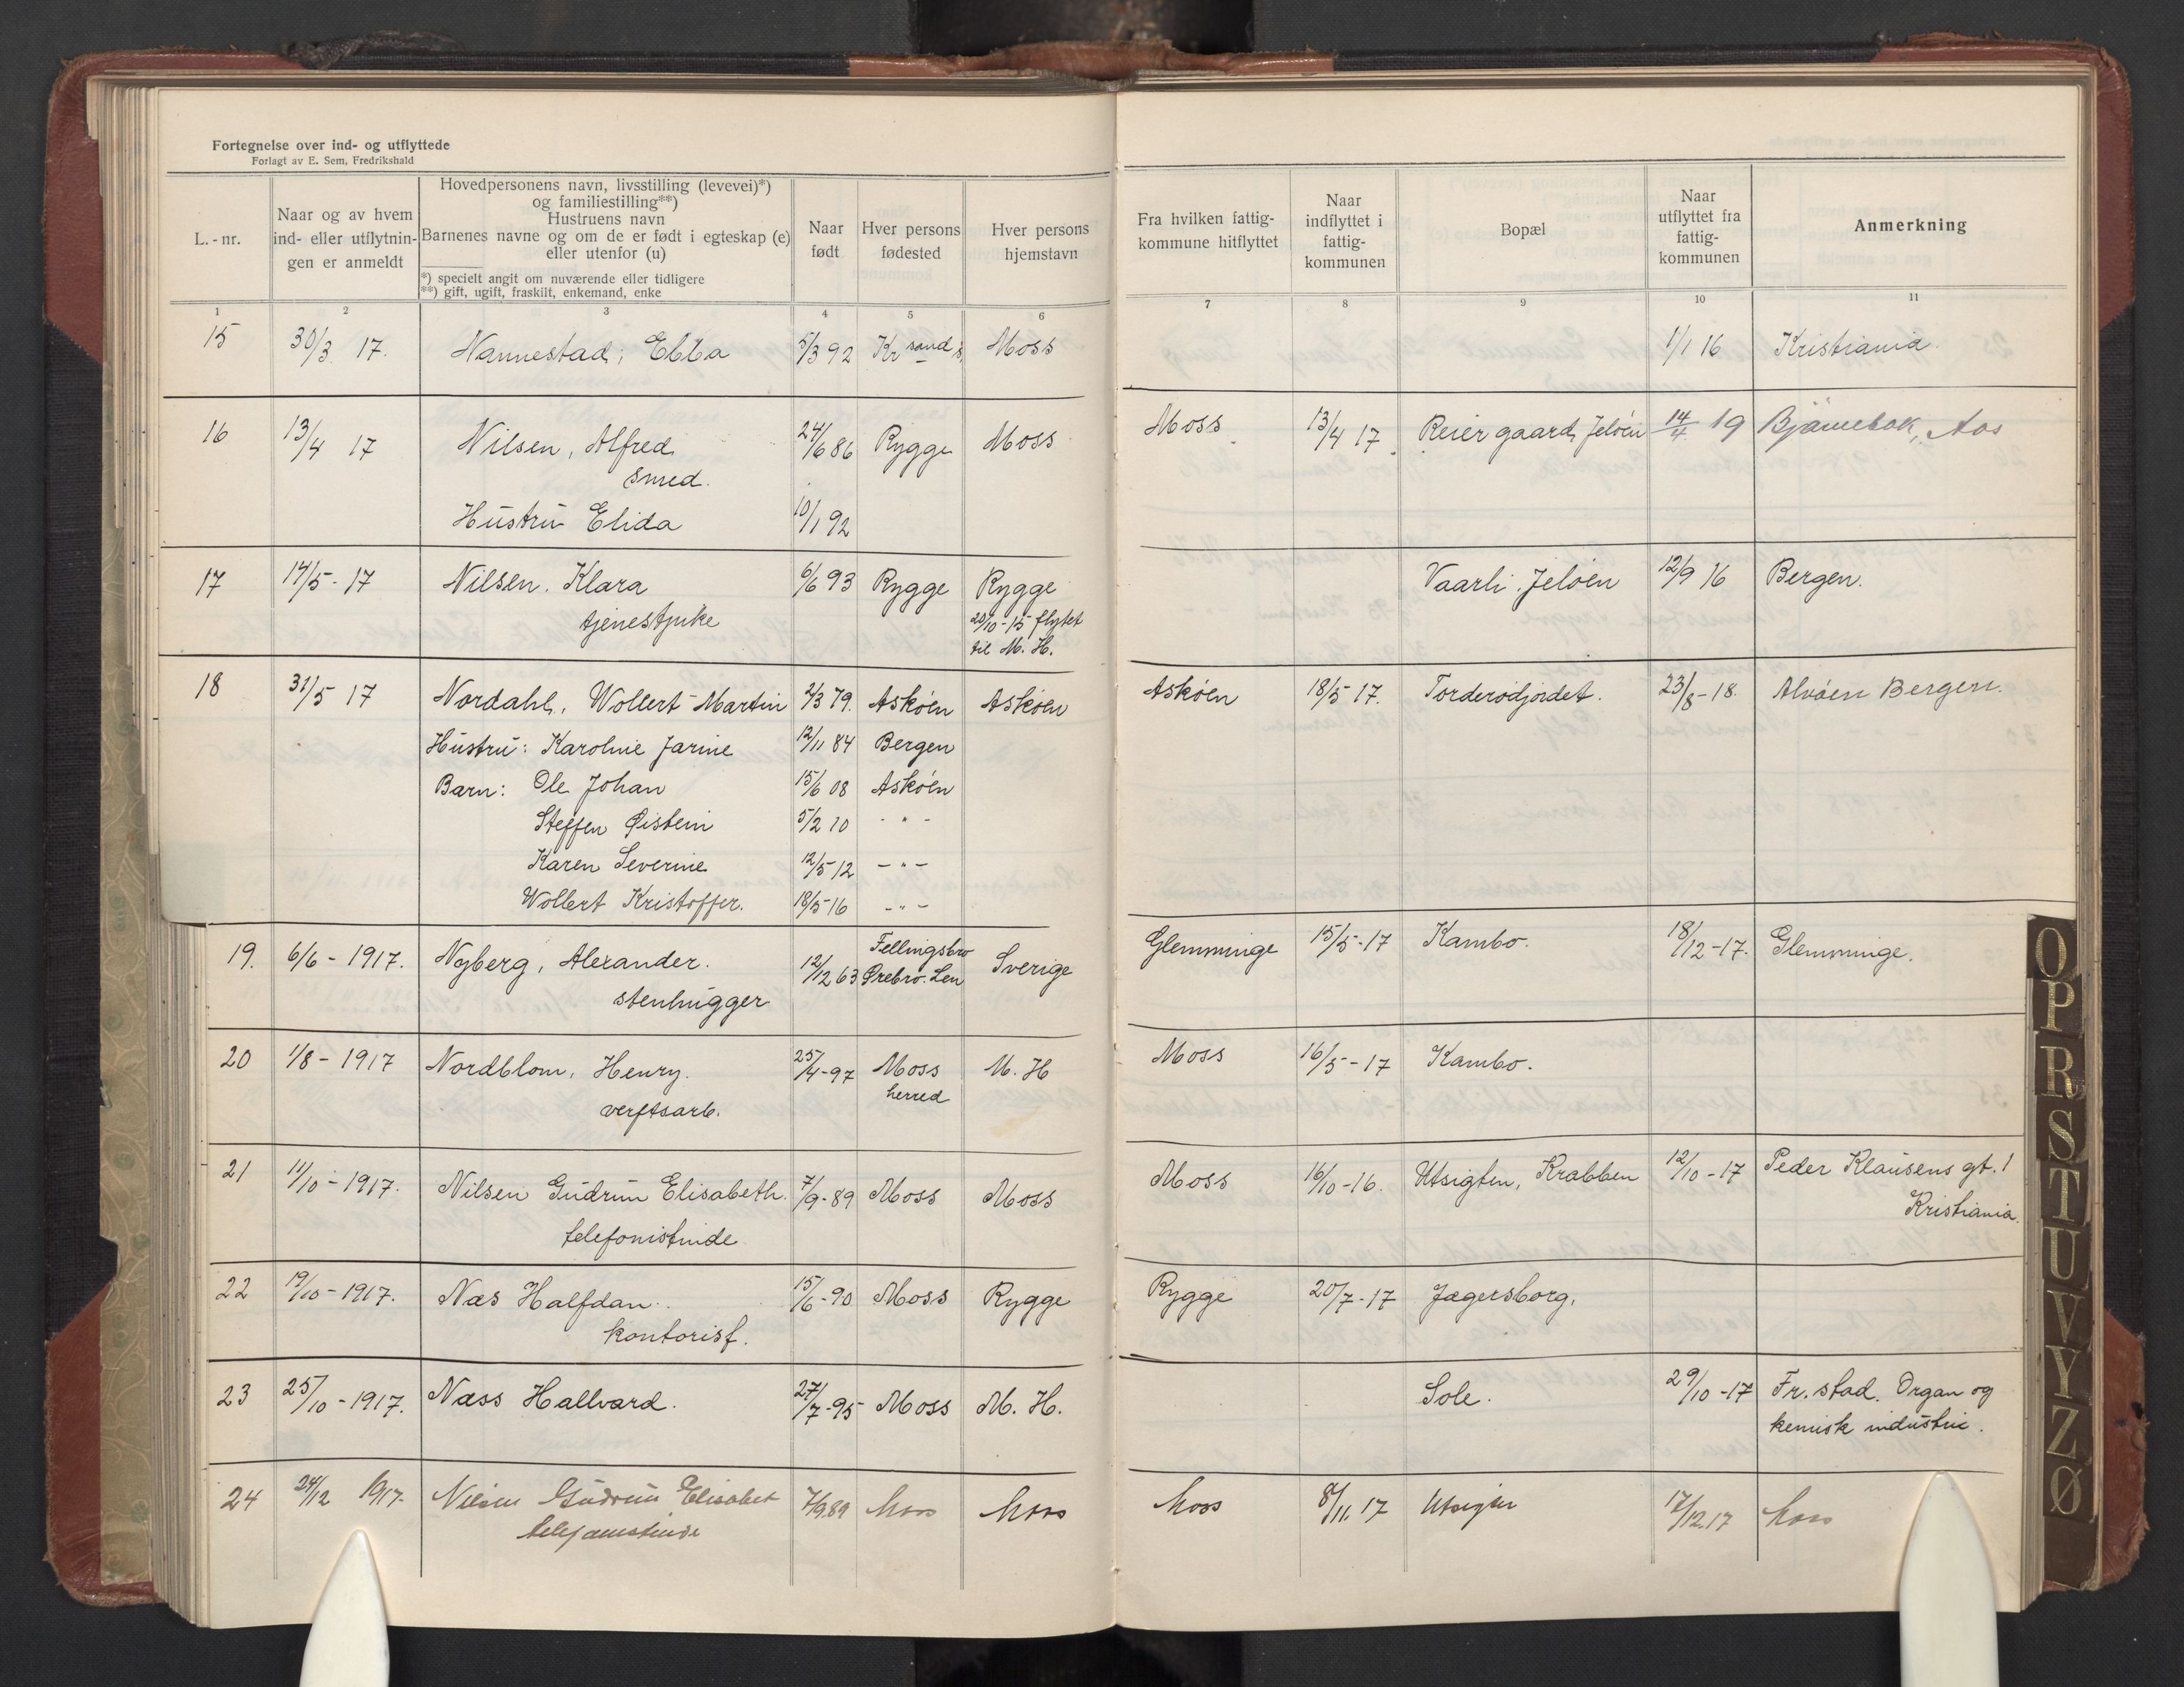 Fortegnelse over ind- og utflyttede
Forlagt av E. Sem, Fredrikshald
L.-nr.
Naar og av hvem
ind- eller utflytnin-
gen er anmeldt
Hovedpersonens navn, livsstilling (levevei)*)
og familiestilling**)
Hustruens navn
Barnenes navne og om de er født i egteskap (e)
eller utenfor (u)
*) specielt angit om nuværende eller tidligere
**) gift, ugift, fraskilt, enkemand, enke
Naar
født
Hver persons
fødested
Hver persons
hjemstavn
Fra hvilken fattig-
kommune hitflyttet
Naar
indflyttet i
fattig-
kommunen
Bopæl
Naar
utflyttet fra
fattig-
kommunen
Anmerkning
1 2 3 4 5 6 7 8 9 10 11
15 30/3 17. Nannestad, Ebba 5/3 92 Kr sand s. Moss 1/1 16 Kristiania.
16 13/4 17 Nilsen, Alfred 24/6 86 Rygge Moss Moss 13/4 17 Reier gaard, Jeløen 14/4 19
smed.
Hustru Elida 10/1 92
17 14/5-17 Nilsen. Klara 6/6 93 Rygge Rygge Vaarli. Jeløen 12/9 16 Bergen.
tjenestpike 20/10-15 flyttet
til M. H.
18 31/5 17 Nordahl, Wollert Martin 2/3 79. Askøen Askøen Askøen 18/5 17. Torderødjordet. 23/8-18. Alvøen Bergen.
Hustru: Karoline Jarine 12/11 84 Bergen
Barn: Ole Johan 15/6 08 Askøen
Steffen Øistein 5/2 10 - " -
Karen Severine 12/5 12 - " -
Wollert Kristoffer. 18/5 16 - " -
19. 6/6-1917. Nyberg, Alexander. 12/12 63 Fellingsbro Sverige Glemminge 15/5-17 Kambo. 18/12-17. Glemminge.
stenhugger Ørebro. Len
20 1/8-1917 Nordblom, Henry. 25/4-97 Moss M. H Moss 16/5-17 Kambo.
verftsarb. herred
21 11/10-1917. Nilsen Gudrun Elisabeth. 7/9-89 Moss Moss Moss 16/10-16. Utsigten, Krabben 12/10-17 Peder Klausens gt. 1
telefonistinde Kristiania.
22 19/10-1917. Næs Halfdan. 15/6-90 Moss Rygge Rygge 20/7-17 Jægersborg.
kontorist.
23 25/10-1917. Næss Hallvard. 27/7-95 Moss M. H. Sole. 29/10-17 Fr.stad. Organ og
kemisk industri.
24 24/12 1917. Nilsen Gudrun Elisabet 7/9 89 Moss Moss Moss 8/11.17 Utsigten 17/12.17 Moss
telefonistinde
O
P
R
S
T
U
V
Y
Z
Ø